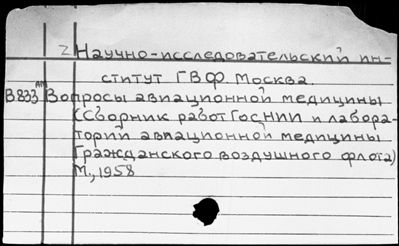 2 Научно-исследовательский ин-
ститут ГВФ. Москва.
АМ
В833 Вопросы авиационной медицины
(Сборник работ ГосНИИ и лабора-
торий авиационной медицины
Гражданского воздушного флота)
М., 1958